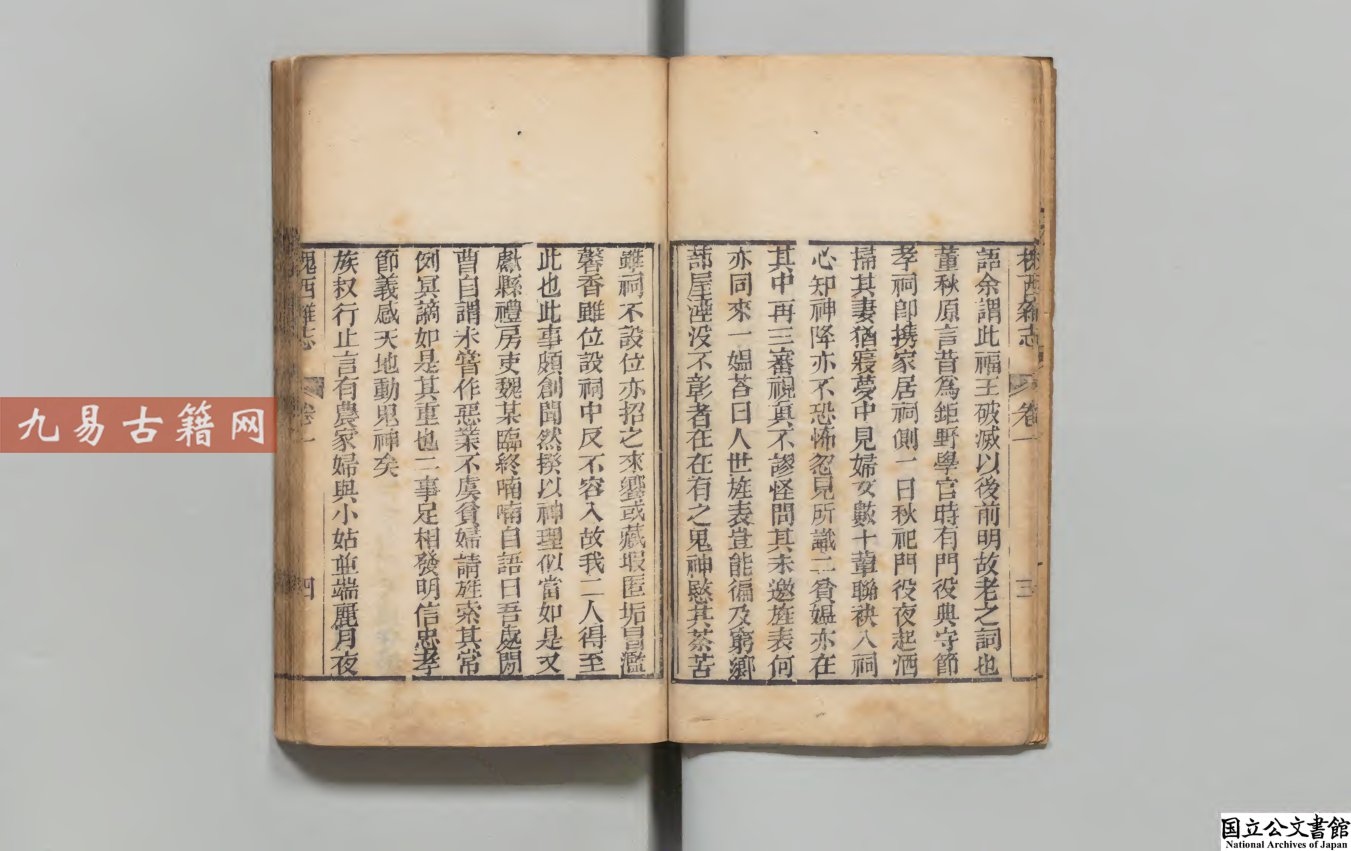 槐西雜志 卷一 三
語余謂此福王破滅以後前明故老之詞也
董秋原言昔為鉅野學官時有門役典守節
孝祠卽携家居祠側一日秋祀門役夜起洒
掃其妻猶寢夢中見婦女數十輩聯袂入祠
心知神降亦不恐怖忽見所識二貧媼亦在
其中再三審視真不謬怪問其未邀旌表何
亦同來一媼荅曰人世旌表豈能徧及窮鄉
蔀屋湮没不彰者在在有之鬼神愍其荼苦
雖祠不設位亦招之來饗或藏瑕匿垢冒濫
馨香雖位設祠中反不容入故我二人得至
此也此事頗創聞然揆以神理似當如是又
獻縣禮房吏魏某臨終喃喃自語曰吾處閒
曹自謂未嘗作惡業不虞貧婦請旌索其常
例冥謫如是其重也二事足相發明信忠孝
節義感天地動鬼神矣
族叔行止言有農家婦與小姑並端麗月夜
槐西雜志 卷一 四
九易古籍网
国立公文書館
National Archives of Japan